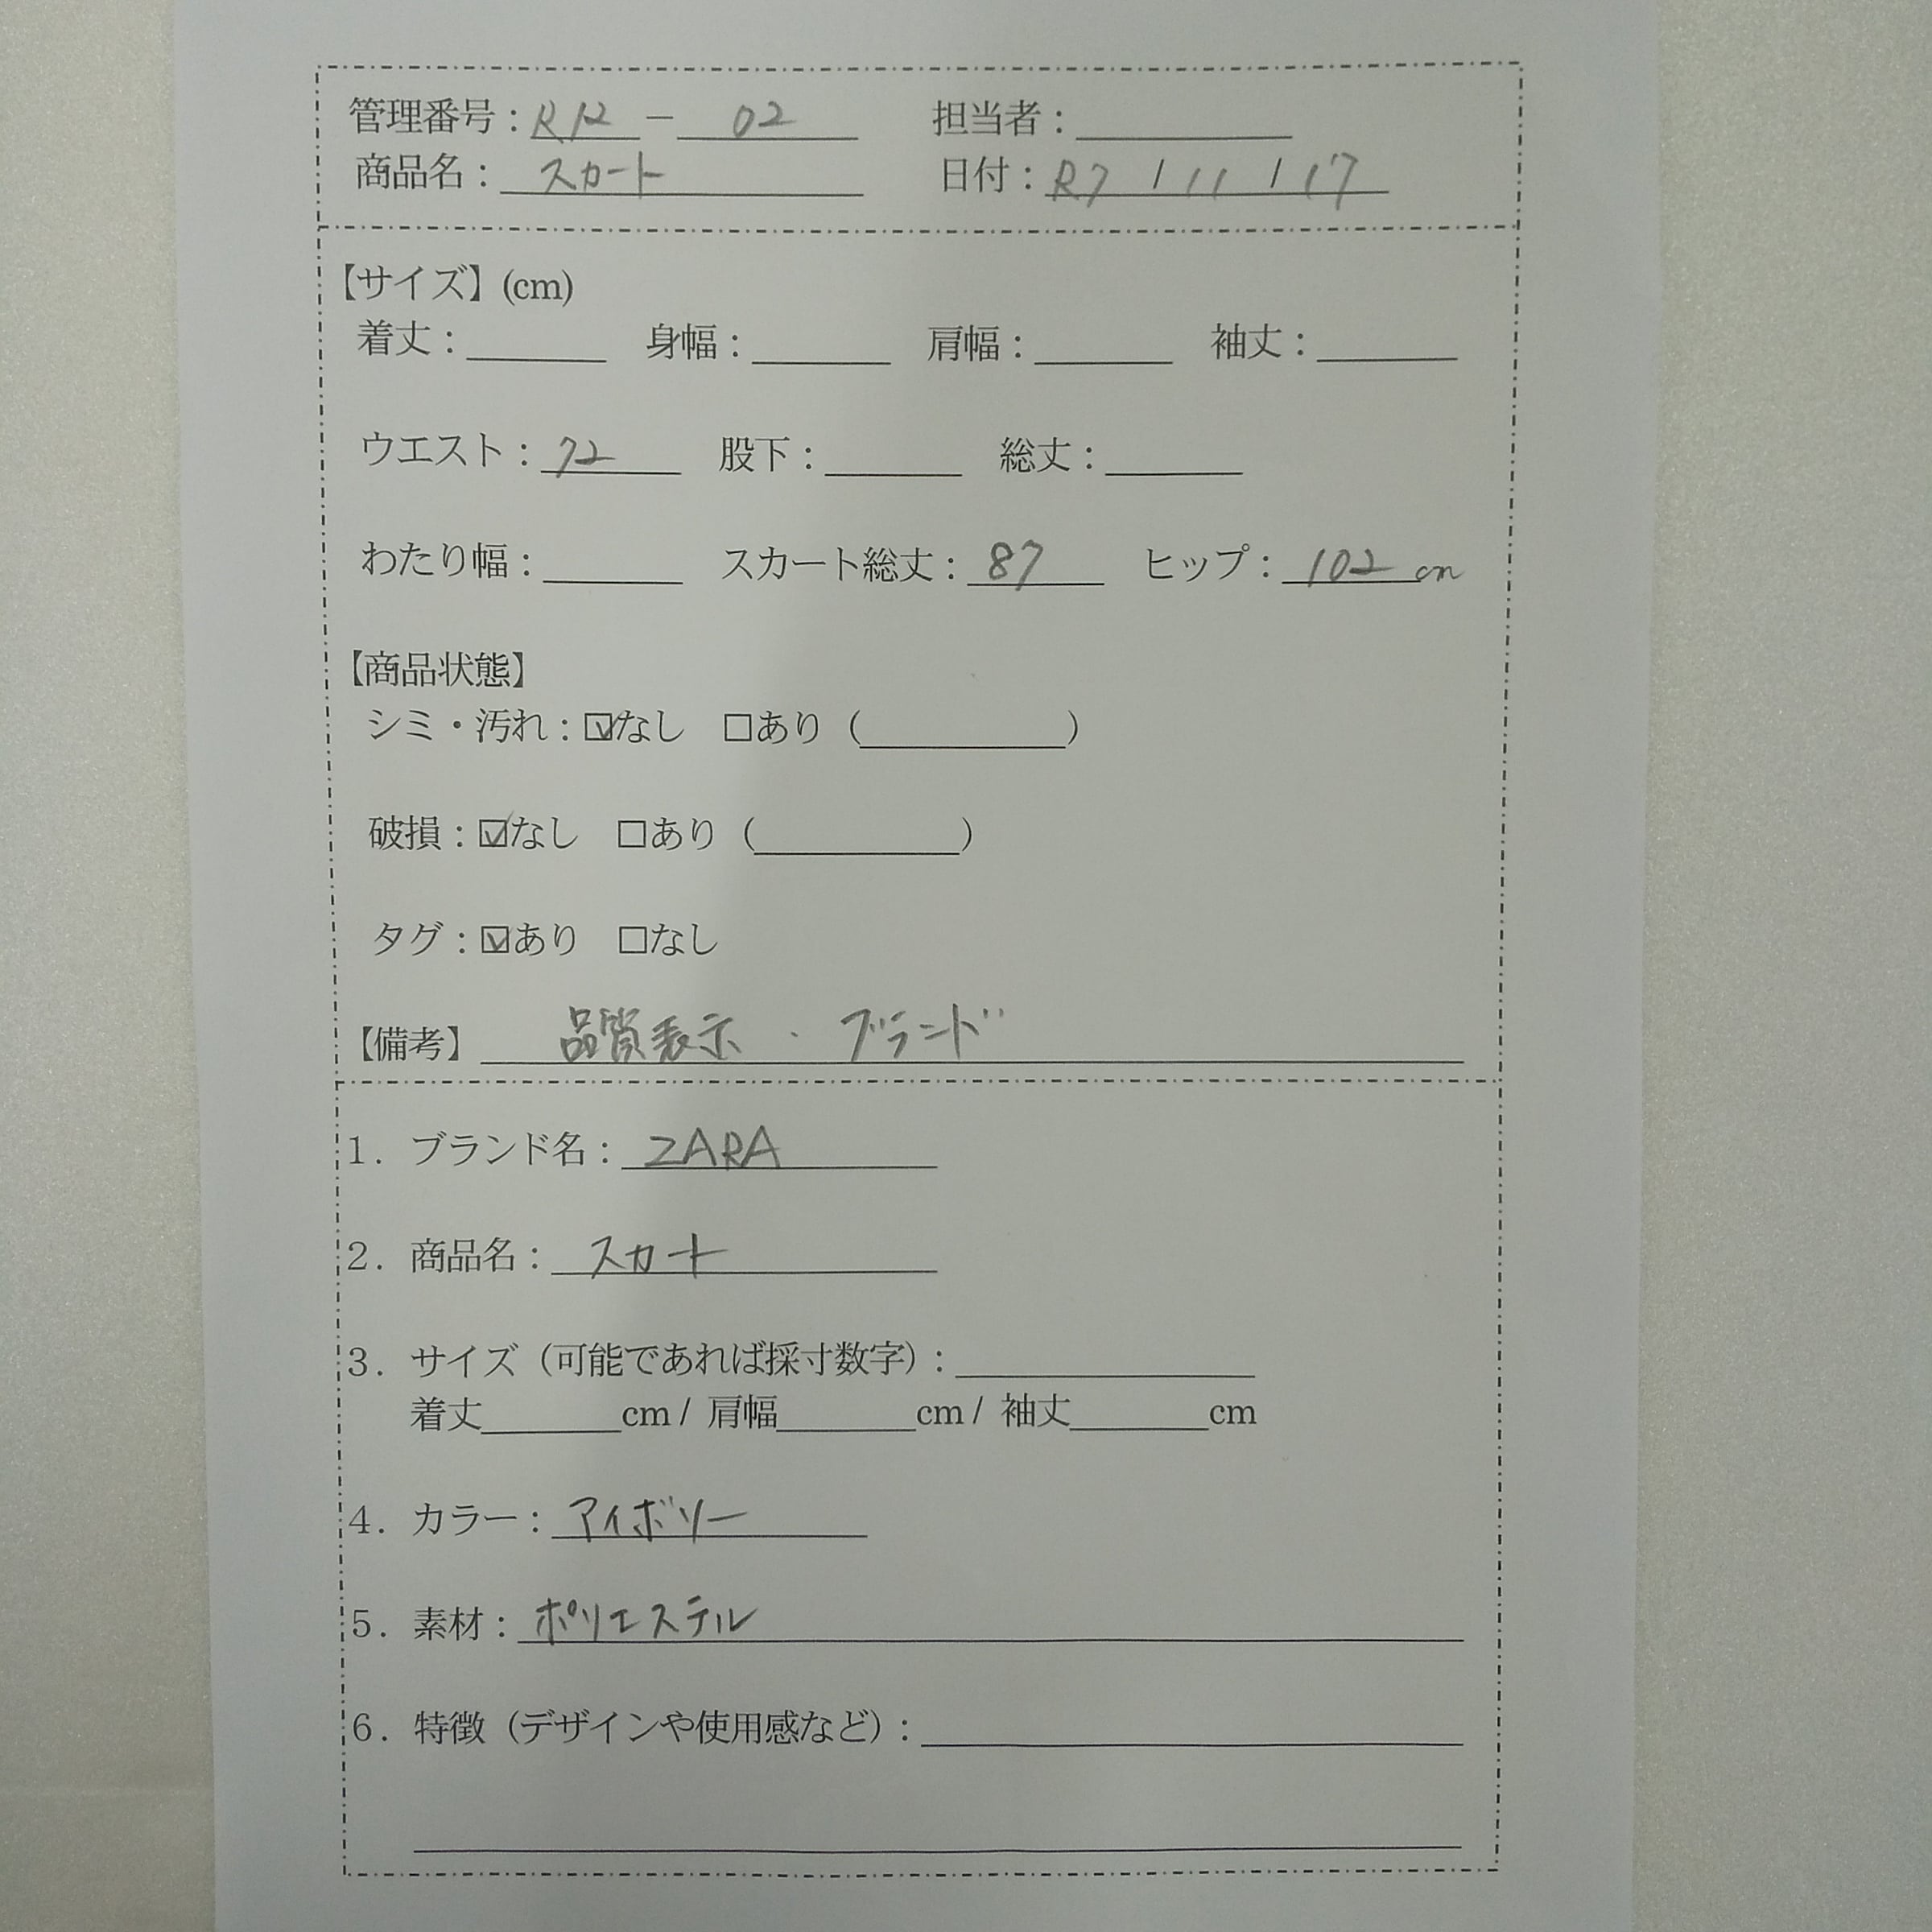 管理番号：R12－02 担当者：
商品名：スカート 日付：R7/11/17
【サイズ】(cm)
着丈： 身幅： 肩幅： 袖丈：
ウエスト：72 股下： 総丈：
わたり幅： スカート総丈：87 ヒップ：102cm
【商品状態】
シミ・汚れ：☑なし □あり（ ）
破損：☑なし □あり（ ）
タグ：☑あり □なし
【備考】 品質表示・ブランド
1．ブランド名：ZARA
2．商品名：スカート
3．サイズ（可能であれば採寸数字）：
着丈 cm / 肩幅 cm / 袖丈 cm
4．カラー：アイボリー
5．素材：ポリエステル
6．特徴（デザインや使用感など）：